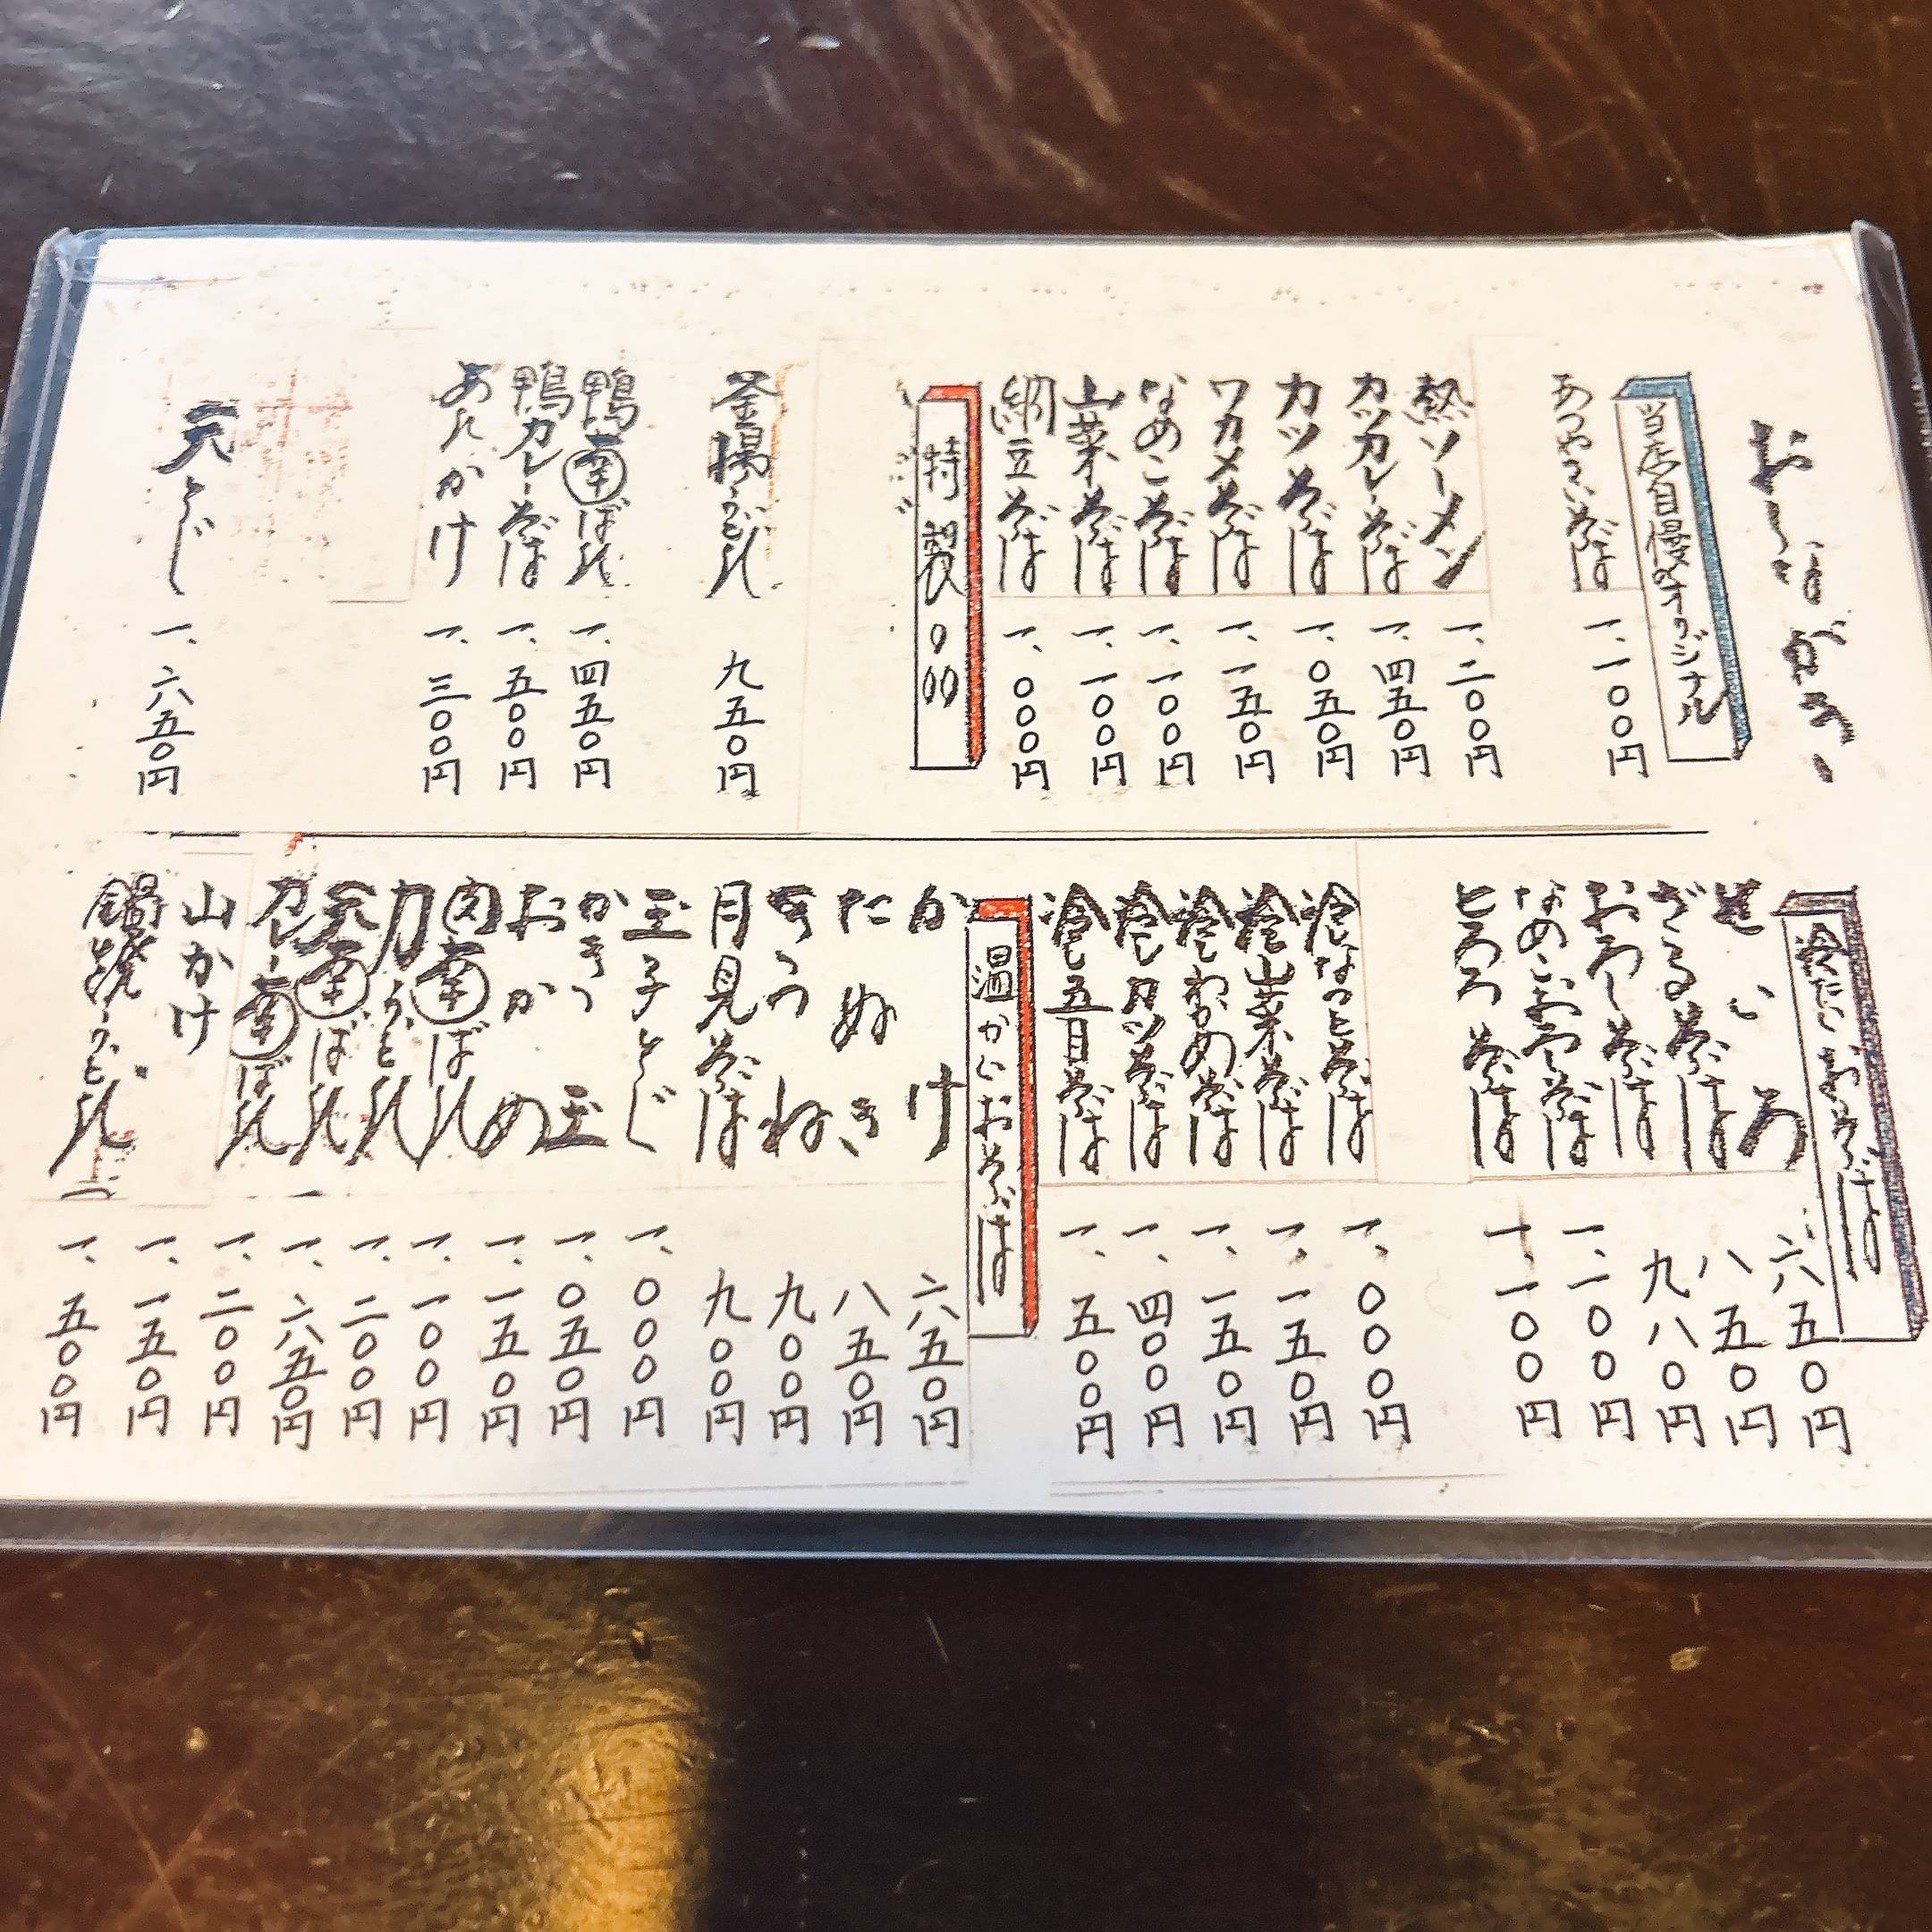 おしながき
当店自慢オリジナル
あつやさいそば 一、一〇〇円
熱ソーメン 一、二〇〇円
カツカレーそば 一、四五〇円
カツそば 一、〇五〇円
ワカメそば 一、一五〇円
なめこそば 一、一〇〇円
山菜そば 一、一〇〇円
納豆そば 一、〇〇〇円
特製
釜揚うどん 九五〇円
鴨南ばん 一、四五〇円
鴨カレーそば 一、五〇〇円
あんかけ 一、三〇〇円
天とじ 一、六五〇円
冷たいおそば
せいろ 六五〇円
ざるそば 八五〇円
おろしそば 九八〇円
なめこおろしそば 一、一〇〇円
とろろそば 一、一〇〇円
冷なっとそば 一、〇〇〇円
冷し山菜そば 一、一五〇円
冷しわかめそば 一、一五〇円
冷しカツそば 一、四〇〇円
冷し五目そば 一、五〇〇円
温かいおそば
かけ 六五〇円
たぬき 八五〇円
きつね 九〇〇円
月見そば 九〇〇円
玉子とじ 一、〇〇〇円
かき玉 一、〇五〇円
おかめ 一、一五〇円
肉南ばん 一、一〇〇円
力うどん 一、二〇〇円
天南ばん 一、六五〇円
カレー南ばん 一、二〇〇円
山かけ 一、一五〇円
鍋焼うどん 一、五〇〇円